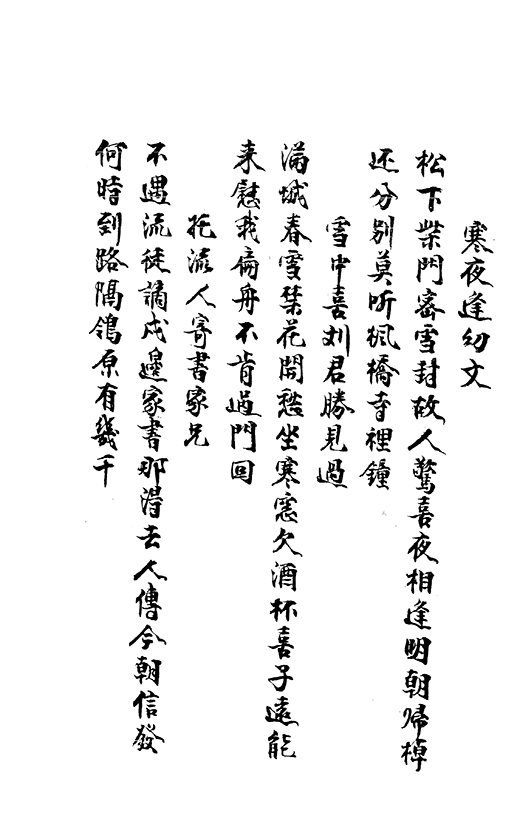 寒夜逢幼文
松下柴門密雪封故人驚喜夜相逢明朝帰棹
还分别莫听楓橋寺裡鐘
雪中喜刘君勝見過
滿城春雪桒花開愁坐寒窓欠酒杯喜子遠能
来慰我扁舟不肯過門回
托流人寄書家兄
不遇流徒謫戍邊家書那得去人傳今朝信發
何時到路隔鴒原有幾千